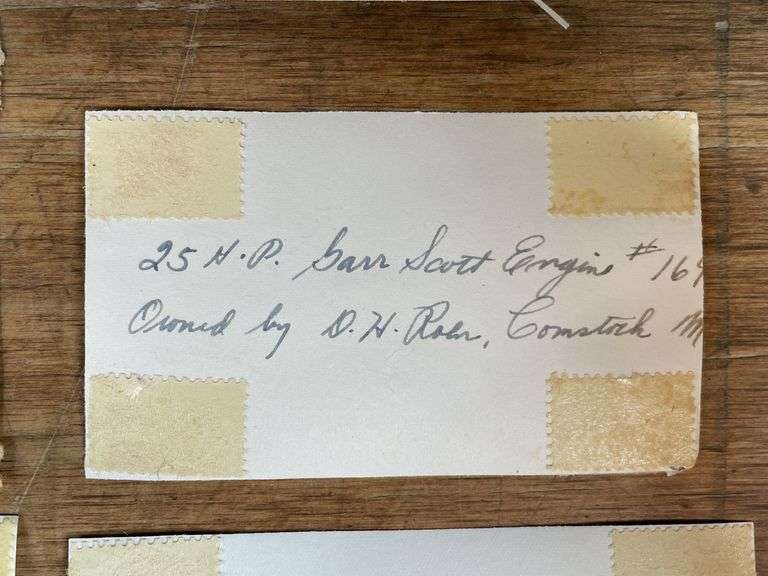 25 H.P. Garr Scott Engine # 169
Owned by D. H. Roen, Comstock M